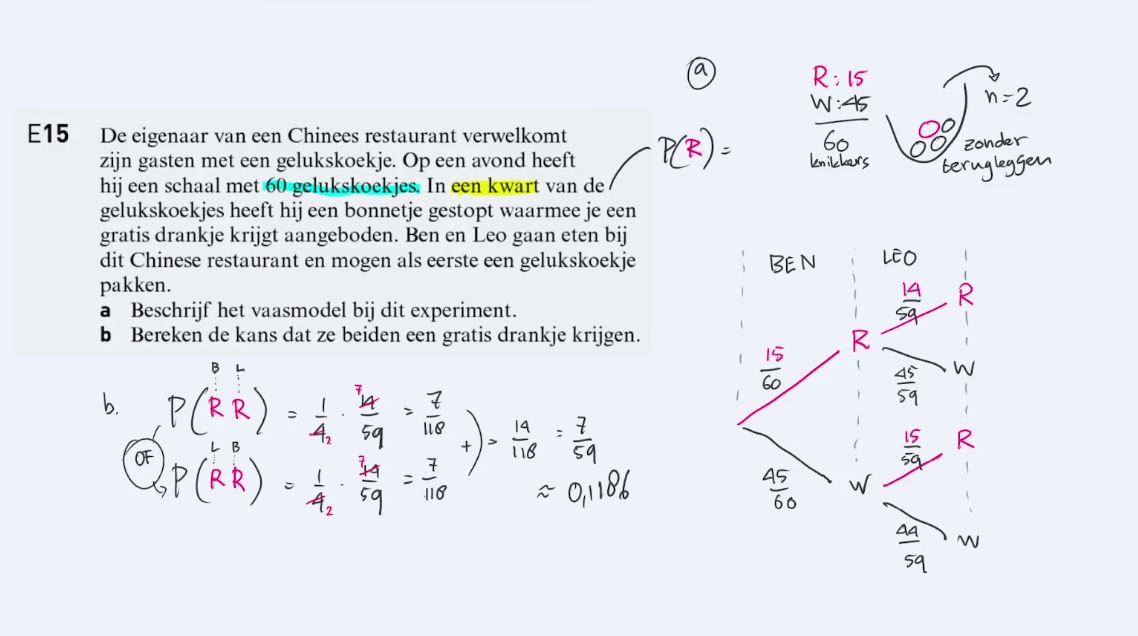 E15 De eigenaar van een Chinees restaurant verwelkomt
zijn gasten met een gelukskoekje. Op een avond heeft
hij een schaal met 60 gelukskoekjes. In een kwart van de
gelukskoekjes heeft hij een bonnetje gestopt waarmee je een
gratis drankje krijgt aangeboden. Ben en Leo gaan eten bij
dit Chinese restaurant en mogen als eerste een gelukskoekje
pakken.
a Beschrijf het vaasmodel bij dit experiment.
b Bereken de kans dat ze beiden een gratis drankje krijgen.
a
R: 15
W: 45
60
knikkers
P(R) =
n=2
zonder
terugleggen
BEN LEO
15/60 R 14/59 R
45/59 W
45/60 W 15/59 R
44/59 W
b.
B L
P(RR) = 1/4 2 · 7 14/59 = 7/118
OF
+ = 14/118 = 7/59
≈ 0,1186
L B
P(RR) = 1/4 2 · 7 14/59 = 7/118